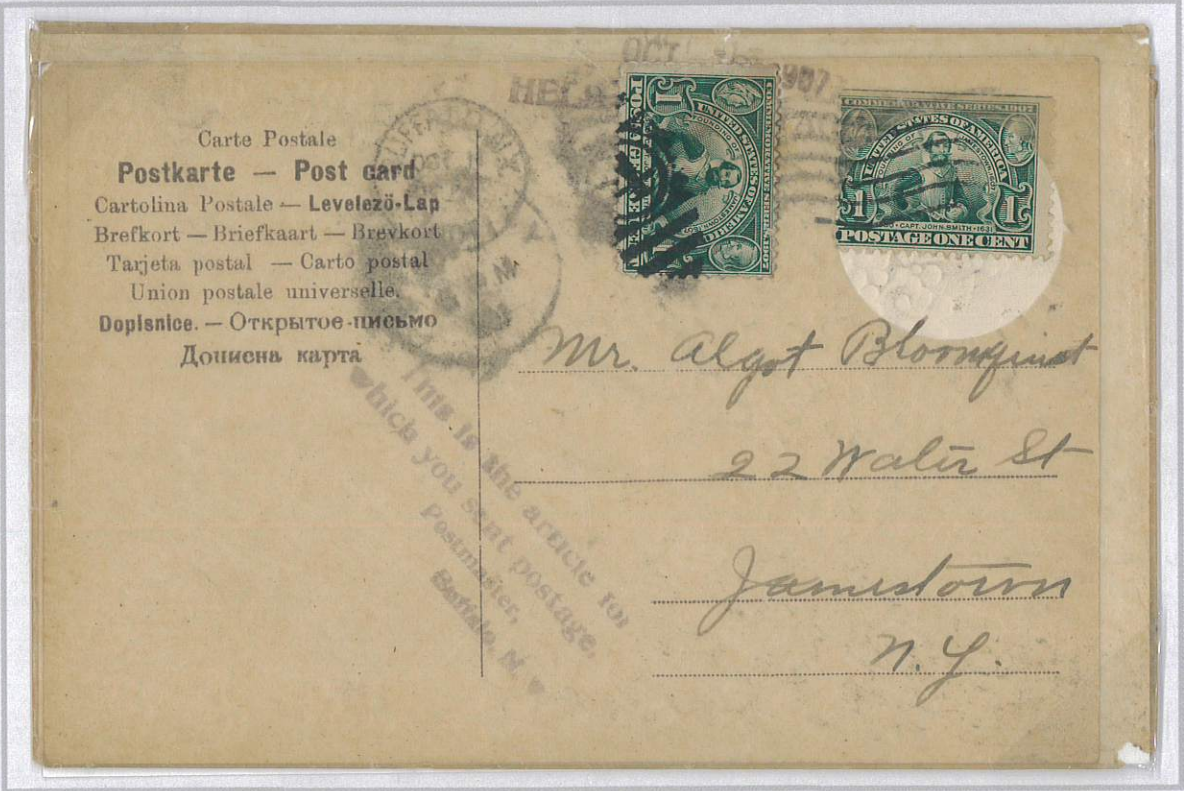 Carte Postale
Postkarte — Post card
Cartolina Postale — Levelező-Lap
Brefkort — Briefkaart — Brevkort
Tarjeta postal — Carto postal
Union postale universelle.
Dopisnice. — Открытое письмо
Дописна карта
BUFFALO, N.Y.
OCT 1
HELD
OCT
1907
COMMEMORATIVE SERIES 1907
UNITED STATES OF AMERICA
FOUNDING OF JAMESTOWN
1 1
POSTAGE ONE CENT
COMMEMORATIVE SERIES 1907
UNITED STATES OF AMERICA
FOUNDING OF JAMESTOWN
CAPT. JOHN SMITH · 1631
1 1
POSTAGE ONE CENT
This is the article for
which you sent postage.
Postmaster,
Buffalo, N. Y.
Mr. Algot Bloomquist
22 Water St
Jamestown
N. Y.